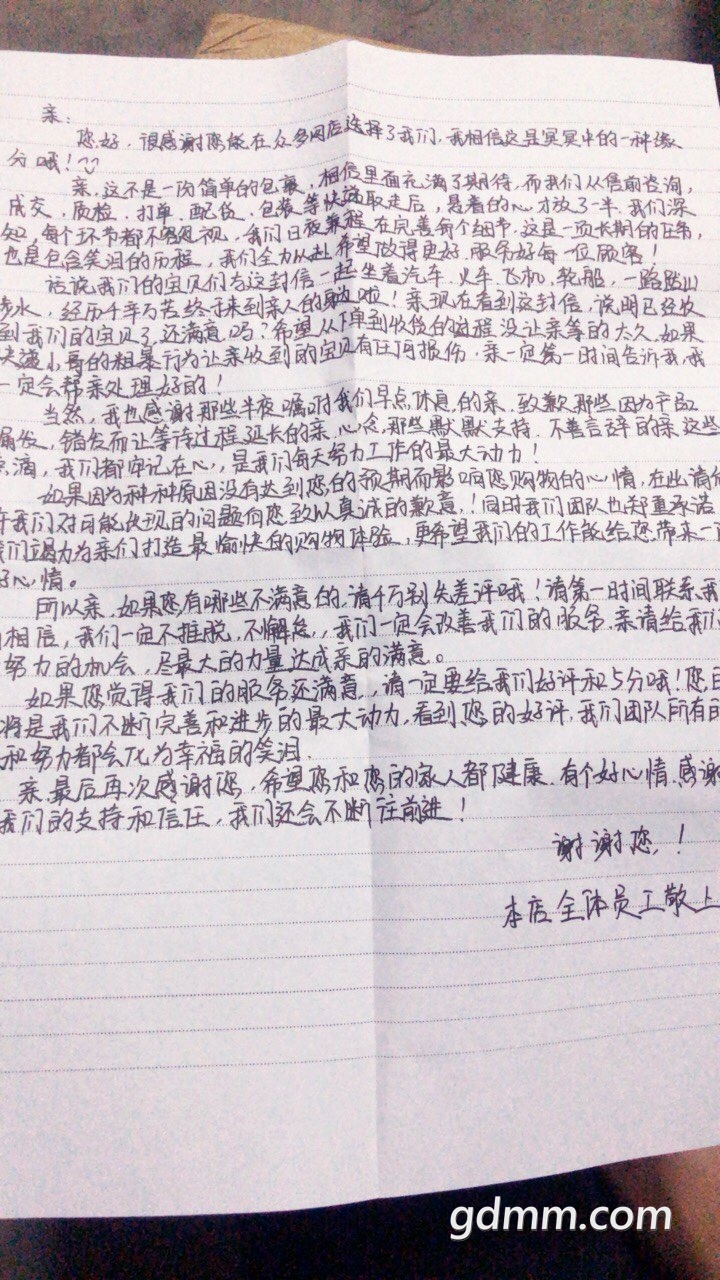 亲:
您好,很感谢您能在众多网店选择了我们,我相信这是冥冥中的一种缘
分哦!
亲,这不是一份简单的包裹,相信里面充满了期待,而我们从售前咨询,
成交、质检、打单、配货、包装等快递取走后,悬着的心才放了一半。我们深
知,每个环节都不容忽视,我们日夜兼程在完善每个细节,这是一项长期的任务,
也是包含笑泪的历程,我们全力以赴希望做得更好,服务好每一位顾客!
话说我们的宝贝们与这封信一起坐着汽车、火车、飞机、轮船,一路跋山
涉水,经历千辛万苦终于来到亲人的身边啦!亲现在看到这封信,说明已经收
到我们的宝贝了,还满意吗?希望从下单到收货的过程没让亲等的太久,如果
快递小哥的粗暴行为让亲收到的宝贝有任何损伤,亲一定第一时间告诉我,我
一定会帮亲处理好的!
当然,我也感谢那些半夜嘱咐我们早点休息的亲,致歉那些因为产品
漏发、错发而让等待过程延长的亲,心念那些默默支持、不善言辞的亲,这些
点滴,我们都牢记在心,是我们每天努力工作的最大动力!
如果因为种种原因没有达到您的预期而影响您购物的心情,在此请
许我们对可能出现的问题向您致以真诚的歉意!同时我们团队也郑重承诺
我们竭力为亲们打造最愉快的购物体验,更希望我们的工作能给您带来一
好心情。
所以亲,如果您有哪些不满意的,请千万别失差评哦!请第一时间联系我
相信,我们一定不推脱,不懈怠,我们一定会改善我们的服务,亲请给我们
努力的机会,尽最大的力量达成亲的满意。
如果您觉得我们的服务还满意,请一定要给我们好评和5分哦!您
将是我们不断完善和进步的最大动力,看到您的好评,我们团队所有的
和努力都会化为幸福的笑泪。
亲最后再次感谢您,希望您和您的家人都健康、有个好心情,感谢
我们的支持和信任,我们还会不断往前进!
谢谢您!
本店全体员工敬上
gdmm.com